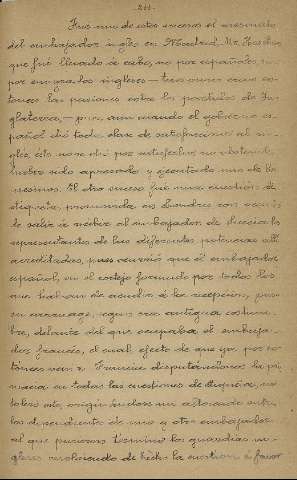 -211-
Fué uno de estos sucesos el asesinato
del embajador inglés en Madrid, Mr.
que fué llevado á cabo, no por españoles, sino
por emigrados ingleses - tan vivas eran en-
tonces las pasiones entre los partidos de In-
glaterra, - pues aun cuando el gobierno es-
pañol dió toda clase de satisfacciones al in-
glés, éste no se dió por satisfecho no obstante
haber sido apresado y ejecutado uno de los
asesinos. El otro suceso fué una cuestión de
etiqueta, promovida en Londres con ocasión
de salir á recibir al embajador de Suecia los
representantes de las diferentes potencias allí
acreditados, pues ocurrió que el embajador
español, en el cortejo formado por todos los
que habían de acudir á la recepción, puso
su carruaje, según era antigua costum-
bre, delante del que ocupaba el embaja-
dor francés, el cual, efecto de que ya por en-
tonces España y Francia disputándose la pri-
macía en todas las cuestiones de etiqueta, no
toleró esto, originándose un altercado entre
los dependientes de uno y otro embajador
al que pusieron término los guardias in-
gleses resolviendo de hecho la cuestión á favor